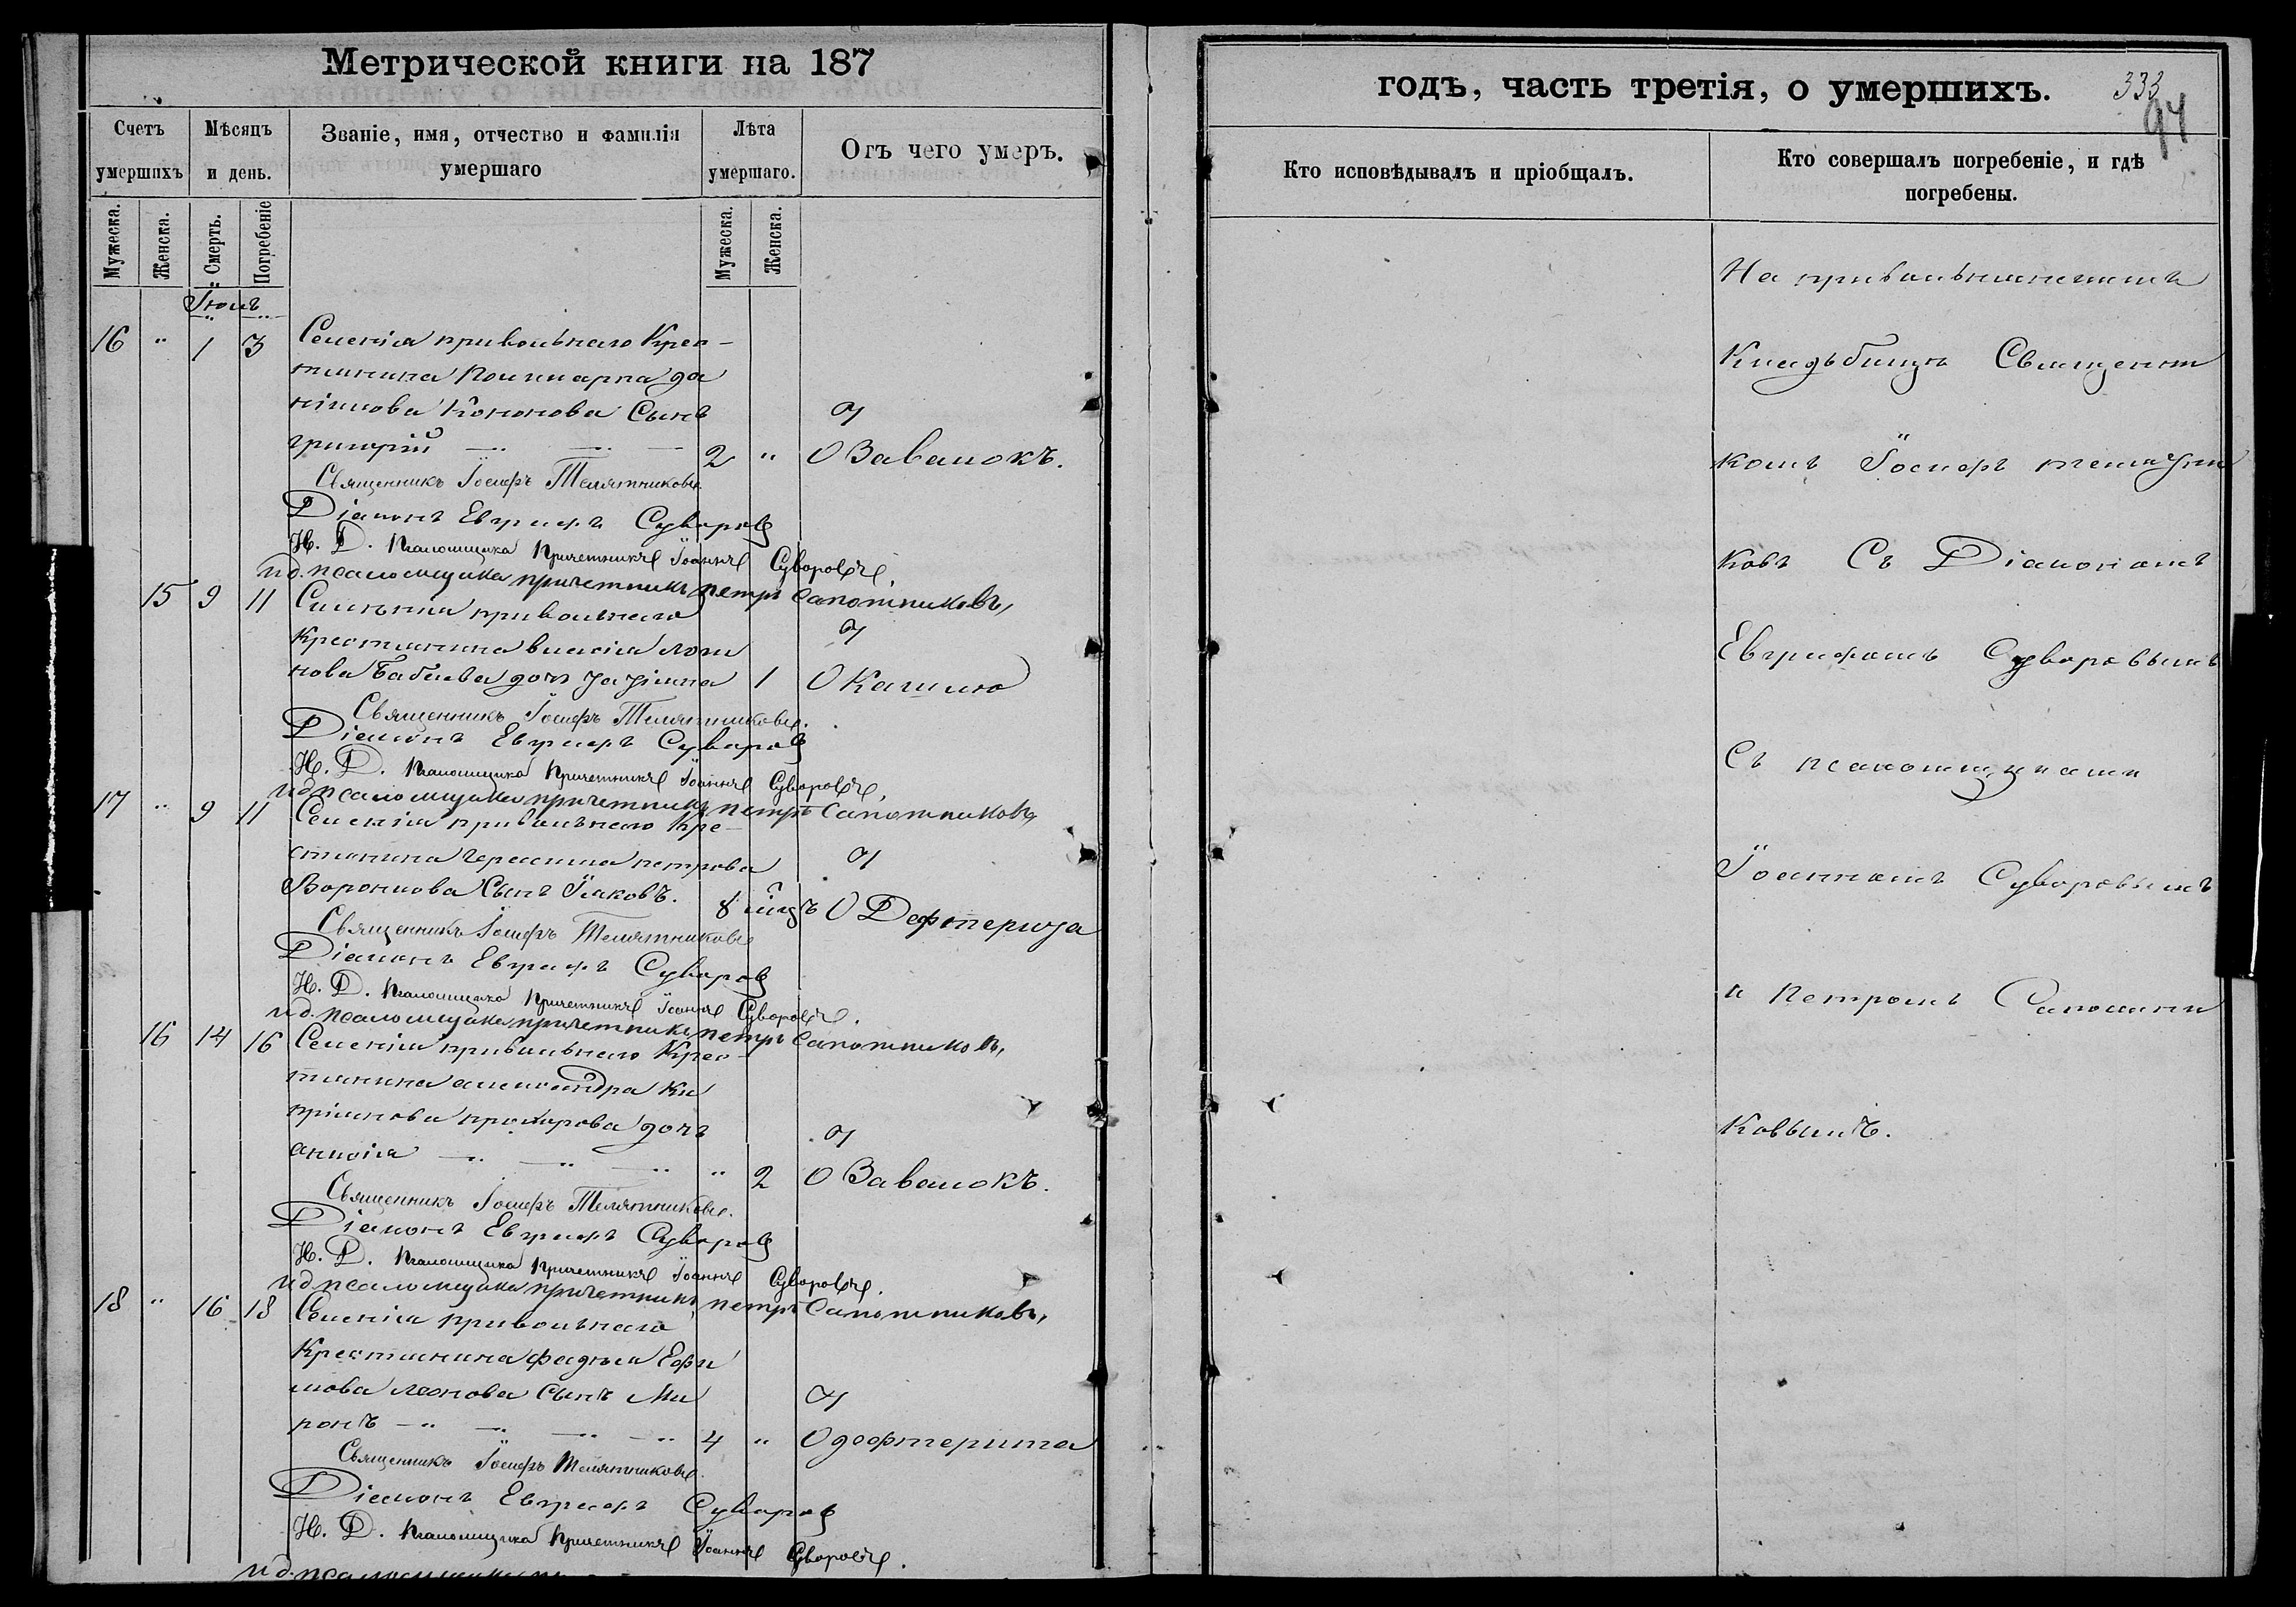 Метрической книги на 187
Счетъ умершихъ
Мѣсяцъ и день.
Званіе, имя, отчество и фамилія умершаго
Лѣта умершаго.
Отъ чего умеръ.
Мужеска.
Женска.
Смерть.
Погребеніе
Мужеска.
Женска.
Іюль
16 " 1 3 Селенія привольнаго Крес-
тьянина Поликарпа да
нілова Кононова Сынъ
григорій 2 " О Завалокъ.
Священникъ Іосифъ Телятниковъ
Діаконъ Евграфъ Суворовъ
И. Д. Псаломщика Причетникъ Іоаннъ Суворовъ.
и д. псаломщика причетникъ петръ Сапожниковъ,
15 9 11 Силѣнія привольнаго
Крестьянина власія логи
нова Бабаева дочь 1 О Кашлю
Священникъ Іосифъ Телятниковъ.
Діаконъ Евграфъ Суворовъ
И. Д. Псаломщика Причетникъ Іоаннъ Суворовъ.
и д псаломщика причетникъ петръ Сапожниковъ,
17 " 9 11 Селенія привольнаго Кре-
стьянина герасима петрова
Воронцова Сынъ Іаковъ. 8 мцъ О Дефтерита
Священникъ Іосифъ Телятниковъ
Діаконъ Евграфъ Суворовъ
И. Д. Псаломщика Причетникъ Іоаннъ Суворовъ.
и д. псаломщика причетникъ петръ Сапожниковъ,
16 14 16 Селенія привольнаго Крес-
тьянина александра Ки
пріянова прохорова дочь
" 2 О Завалокъ.
Священникъ Іосифъ Телятниковъ.
Діаконъ Евграфъ Суворовъ
И. Д. Псаломщика Причетникъ Іоаннъ Суворовъ.
и д псаломщика причетникъ петръ Сапожниковъ,
18 " 16 18 Селенія привольнаго
Крестьянина фадѣя Ефи
мова леонова Сынъ Ми
ронъ 4 " О дефтерита
Священникъ Іосифъ Телятниковъ.
Діаконъ Евграфъ Суворовъ
И. Д. Псаломщика Причетникъ Іоаннъ Суворовъ.
и д. псаломщика
годъ, часть третія, о умершихъ.
333
94
Кто исповѣдывалъ и пріобщалъ.
Кто совершалъ погребеніе, и гдѣ погребены.
На привольнянскомъ
Кладъбищѣ Священни
комъ Іосифъ телятни
ковъ Съ Діакономъ
Евграфомъ Суворовымъ
Съ псаломщиками
Іоанномъ Суворовымъ
и Петромъ Сапожни
ковымъ.